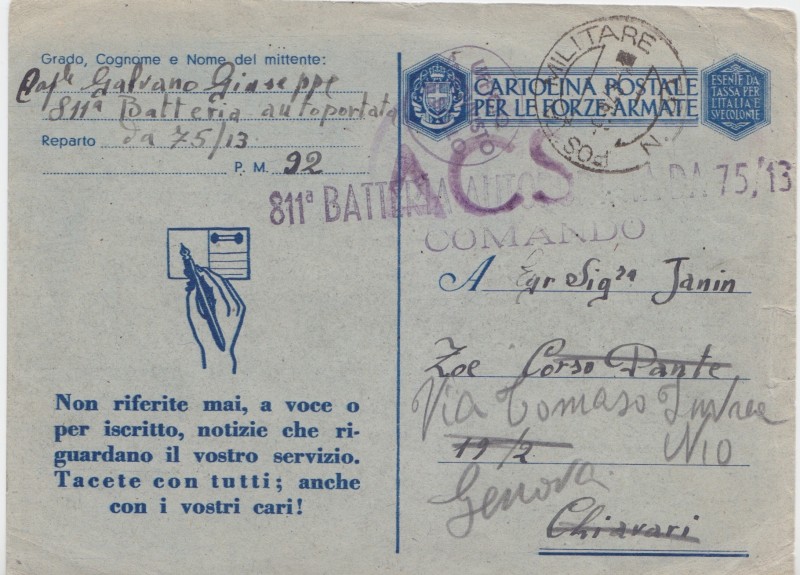 Grado, Cognome e Nome del mittente:
Cap.le Galvano Giuseppe
811ª Batteria autoportata
Reparto da 75/13
P. M. 92
Non riferite mai, a voce o
per iscritto, notizie che ri-
guardano il vostro servizio.
Tacete con tutti; anche
con i vostri cari!
CARTOLINA POSTALE
PER LE FORZE ARMATE
ESENTE DA
TASSA PER
L'ITALIA E
SVE COLONIE
POSTA MILITARE N.
ACS
811ª BATTERIA AUTOPORTATA DA 75/13
COMANDO
A Egr Sigra Janin
Zoe Corso Dante
Via Tomaso Invrea
19/2 N10
Genova
Chiavari